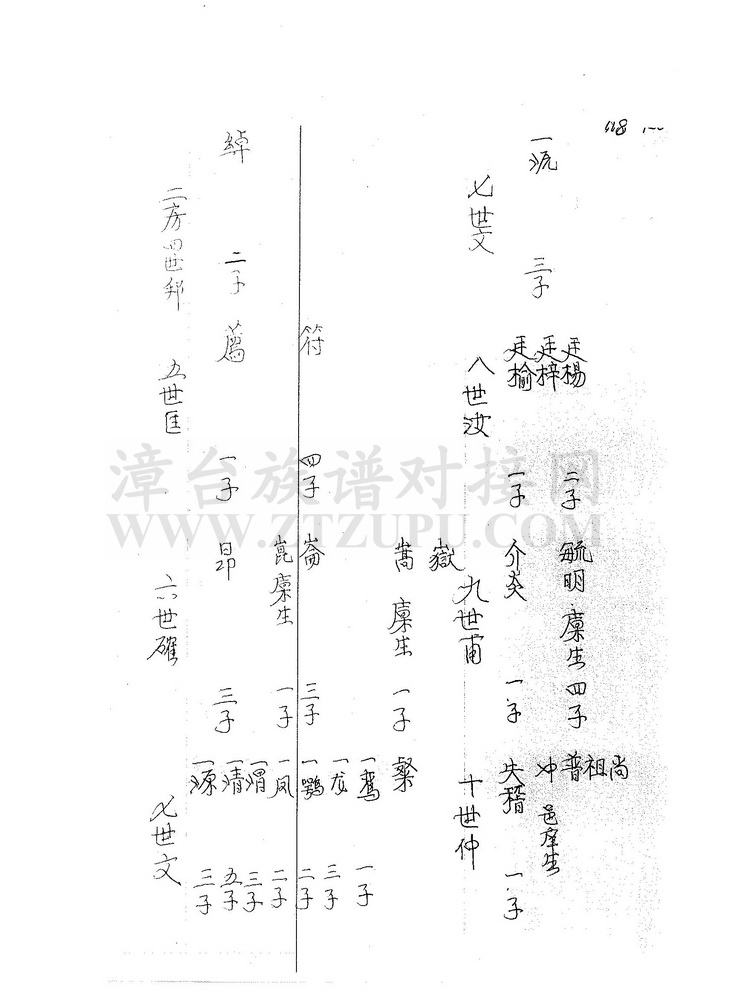 一派
三子
廷楊
廷梓
廷榆
二子
一子
毓明 廩生 四子
介炎
一子
尚
祖
普
冲 邑庠生
失稽
一子
七世文
八世汝
九世甫
十世仲
嶽
嵩 廩生 一子
粲
符
四子
崙
三子
崑 廩生
一子
一鸞
一龙
一鶚
一凤
一子
三子
二子
二子
綽
二子
薦
一子
昂
三子
一渭
一清
一源
三子
五子
三子
二房四世邦
五世匡
六世確
七世文
漳台族谱对接网
WWW.ZTZUPU.COM